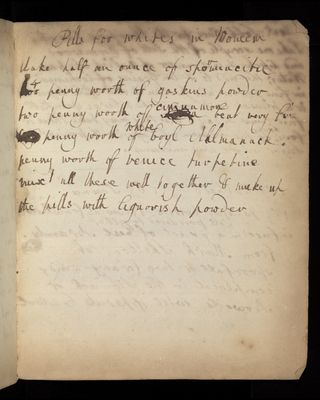 Pills for whites in Women
take half an ounce of
two penny worth of gaskins powder
two penny worth of cinnamon beat very
penny worth of white
penny worth of venice turpetine
mix all these well together & make up
the pills with liquorish powder